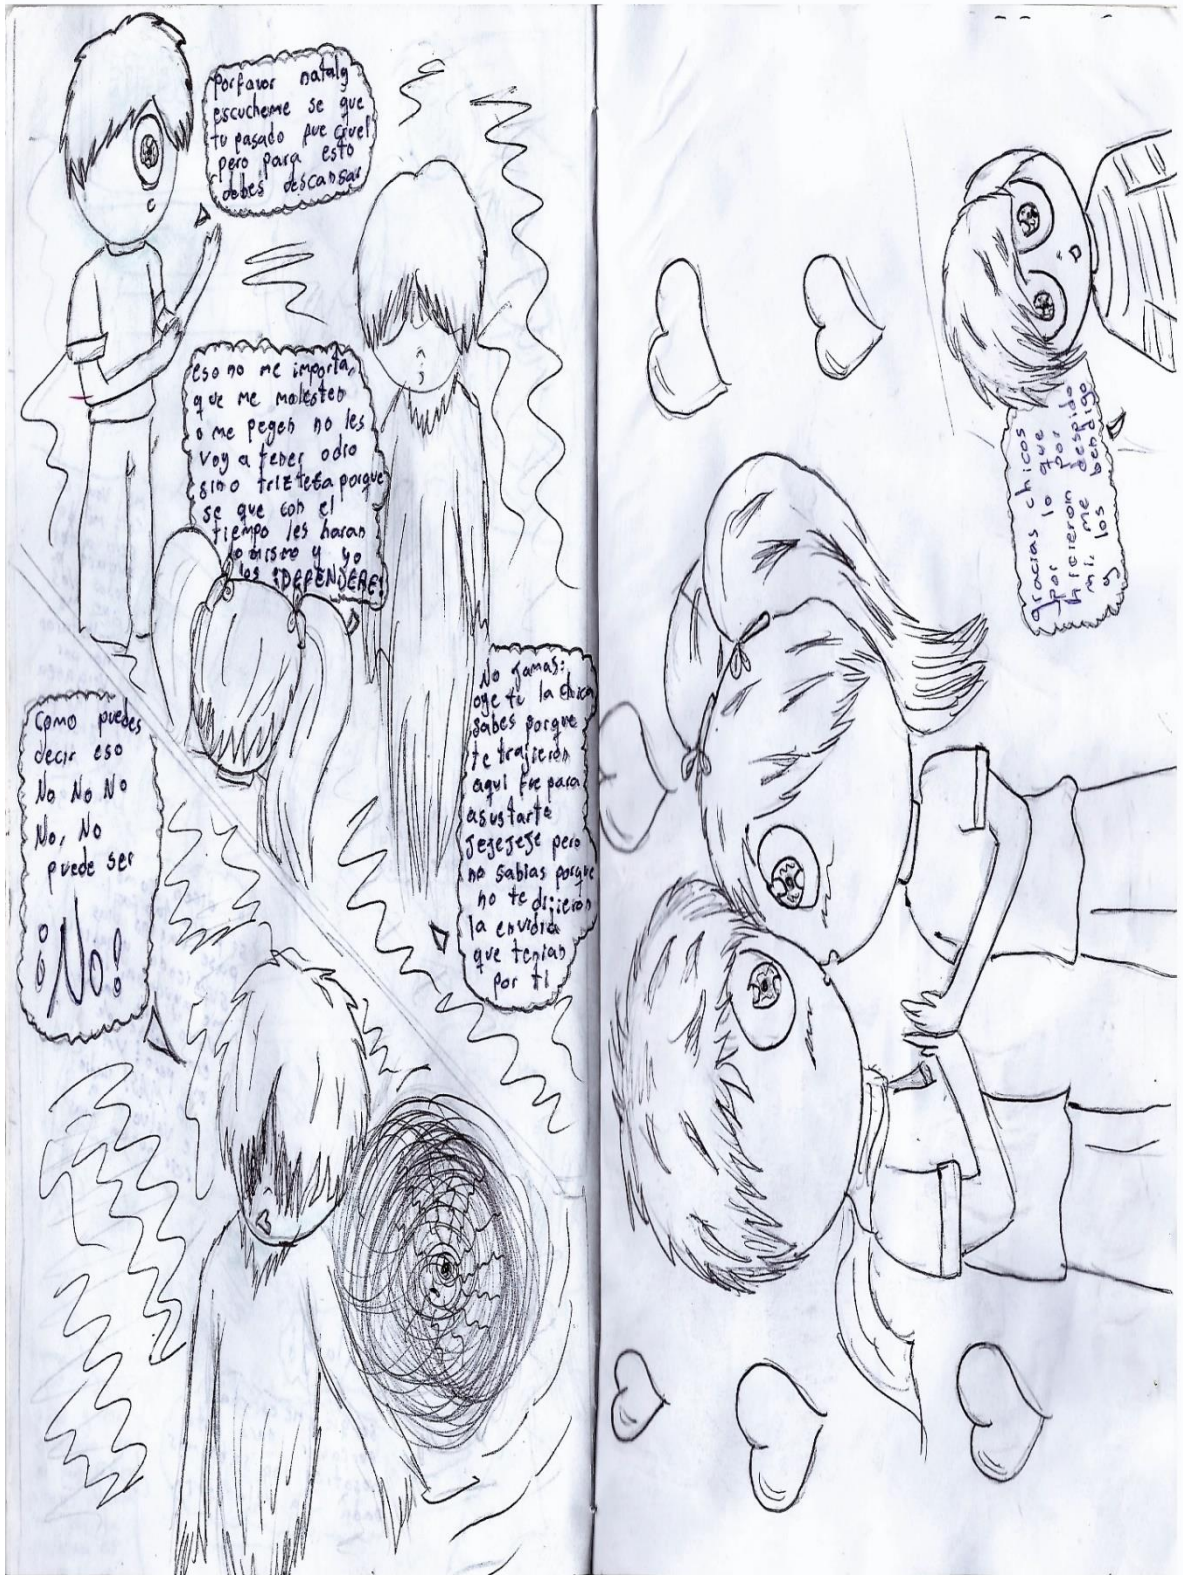 porfavor nataly
escucheme se que
tu pasado fue cruel
pero para esto
debes descansar
eso no me importa,
que me molesten
o me pegen no les
voy a tener odio
sino trizteza porque
se que con el
tiempo les haran
lo mismo y yo
los ¡DEFENDERE!
No jamas:
oye tu la chica
sabes porque
te trajieron
aqui fue para
asustarte
jejejeje pero
no sabias porque
no te dijieron
la envidia
que tenian
por ti
Como puedes
decir eso
No No No
No, No
puede ser
¡No!
gracias chicos
por lo que
hicieron por
mi, me despido
y los bendigo